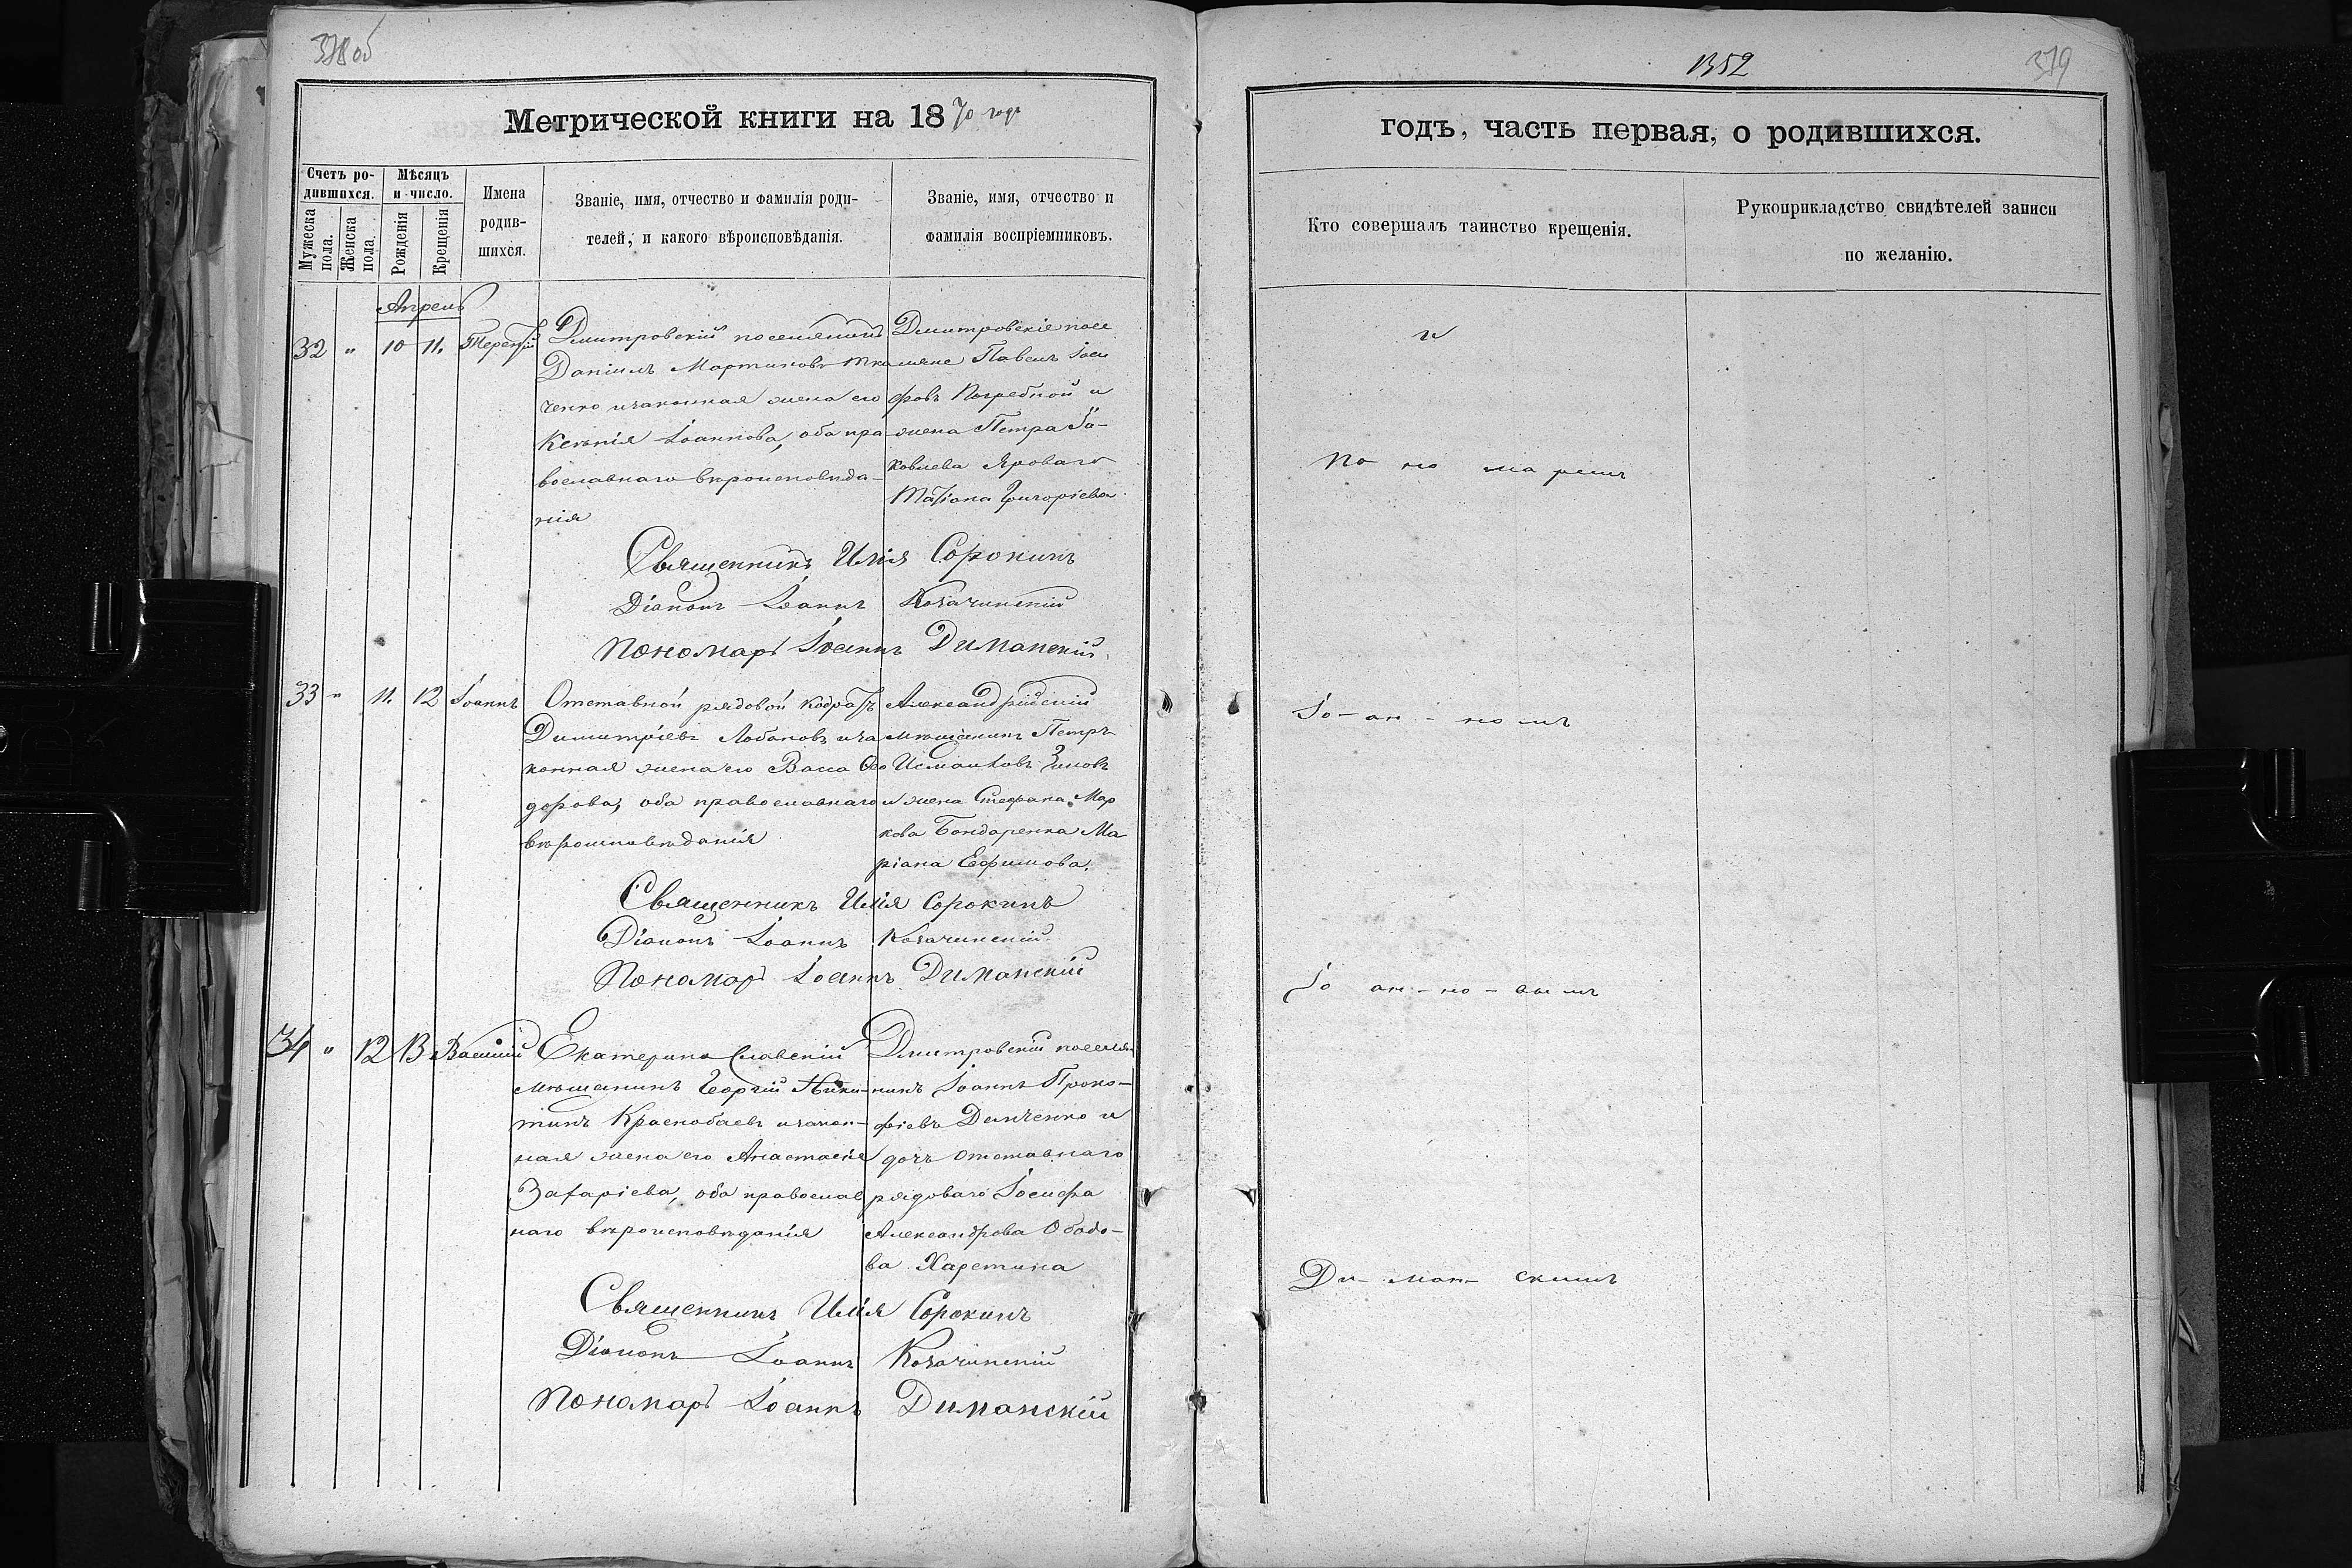 378 об
Метрической книги на 1870 годъ
Счетъ ро-
дившихся.
Мѣсяцъ
и число.
Мужеска
пола.
Женска
пола.
Рожденія
Крещенія
Имена
родив-
шихся.
Званіе, имя, отчество и фамилія роди-
телей, и какого вѣроисповѣданія.
Званіе, имя, отчество и
фамилія воспріемниковъ.
Апрель
32 " 10 11. Терентій
Дмитровскій поселянинъ
Даніилъ Мартиновъ Тка
ченко и законная жена его
Ксенія Іоаннова, оба пра-
вославнаго вѣроисповѣда-
нія
Дмитровскіе посе
ляне Павелъ Іоси
фовъ Погребной и
жена Петра Іа-
ковлева Яроваго
Татіана Григоріева.
Священникъ Илія Сорокинъ
Діаконъ Іоаннъ Козачинскій
Пономарь Іоаннъ Диманскій
33 " 11. 12 Іоаннъ
Отставной рядовой Кодратъ
Димитріевъ Лобановъ и за
конная жена его Васса Ѳео
дорова, оба православнаго
вѣроисповѣданія
Александрійскій
мѣщанинъ Петръ
Исмаиловъ Зиновъ
и жена Стефана Мар
кова Бондаренка Ма
ріана Евфимова.
Священникъ Илія Сорокинъ
Діаконъ Іоаннъ Козачинскій
Пономарь Іоаннъ Диманскій
34 " 12 13 Василій
Екатеринославскій
мѣщанинъ Георгій Ники-
тинъ Краснобаевъ и закон-
ная жена его Анастасія
Захаріева, оба православ
наго вѣроисповѣданія
Дмитровскій поселя-
нинъ Іоаннъ Проко-
фіевъ Демченко и
дочь отставнаго
рядоваго Іосифа
Александрова Ободо-
ва Харетина
Священникъ Илія Сорокинъ
Діаконъ Іоаннъ Козачинскій
Пономарь Іоаннъ Диманскій
1352
379
годъ, часть первая, о родившихся.
Кто совершалъ таинство крещенія.
Рукоприкладство свидѣтелей записи
по желанію.
и
По но ма ремъ
Іо-ан-но мъ
Іо ан-но-вымъ
Ди-ман-скимъ